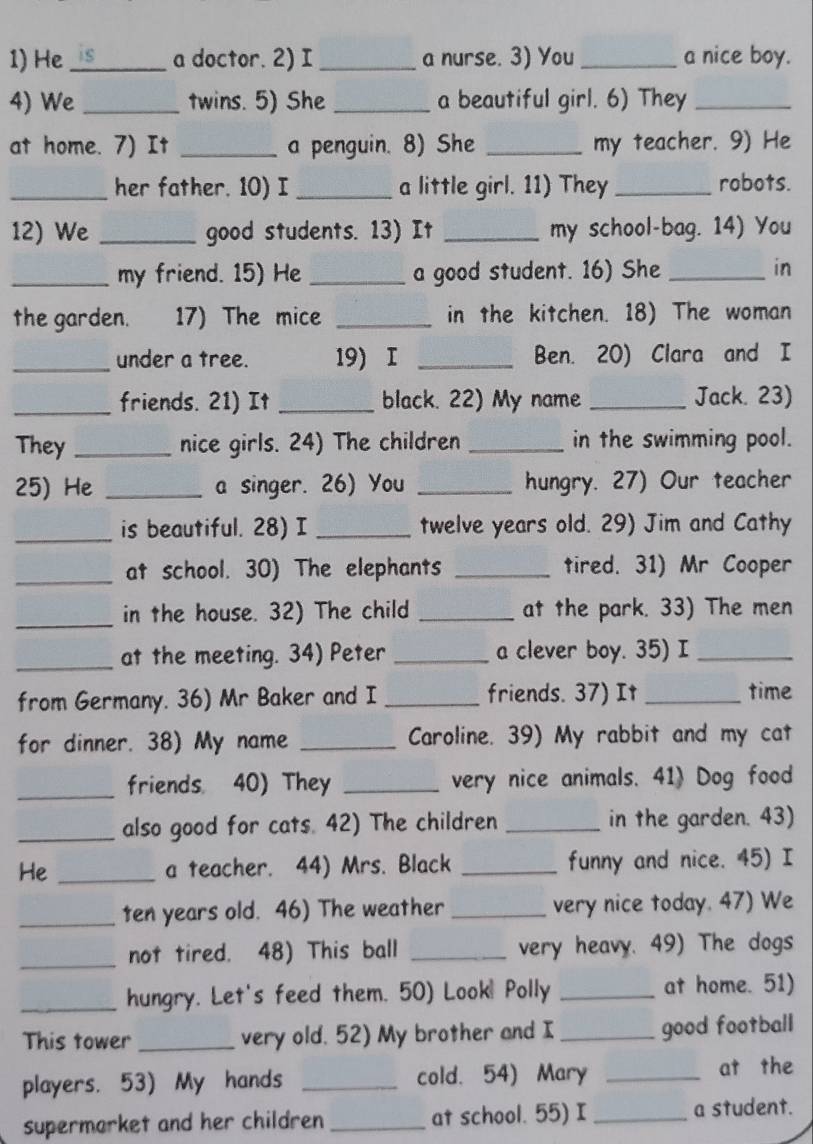 1) He is ________ a doctor. 2) I ________ a nurse. 3) You ________ a nice boy.
4) We ________ twins. 5) She ________ a beautiful girl. 6) They ________
at home. 7) It ________ a penguin. 8) She ________ my teacher. 9) He
________ her father. 10) I ________ a little girl. 11) They ________ robots.
12) We ________ good students. 13) It ________ my school-bag. 14) You
________ my friend. 15) He ________ a good student. 16) She ________ in
the garden. 17) The mice ________ in the kitchen. 18) The woman
________ under a tree. 19) I ________ Ben. 20) Clara and I
________ friends. 21) It ________ black. 22) My name ________ Jack. 23)
They ________ nice girls. 24) The children ________ in the swimming pool.
25) He ________ a singer. 26) You ________ hungry. 27) Our teacher
________ is beautiful. 28) I ________ twelve years old. 29) Jim and Cathy
________ at school. 30) The elephants ________ tired. 31) Mr Cooper
________ in the house. 32) The child ________ at the park. 33) The men
________ at the meeting. 34) Peter ________ a clever boy. 35) I ________
from Germany. 36) Mr Baker and I ________ friends. 37) It ________ time
for dinner. 38) My name ________ Caroline. 39) My rabbit and my cat
________ friends. 40) They ________ very nice animals. 41) Dog food
________ also good for cats. 42) The children ________ in the garden. 43)
He ________ a teacher. 44) Mrs. Black ________ funny and nice. 45) I
________ ten years old. 46) The weather ________ very nice today. 47) We
________ not tired. 48) This ball ________ very heavy. 49) The dogs
________ hungry. Let's feed them. 50) Look! Polly ________ at home. 51)
This tower ________ very old. 52) My brother and I ________ good football
players. 53) My hands ________ cold. 54) Mary ________ at the
supermarket and her children ________ at school. 55) I ________ a student.